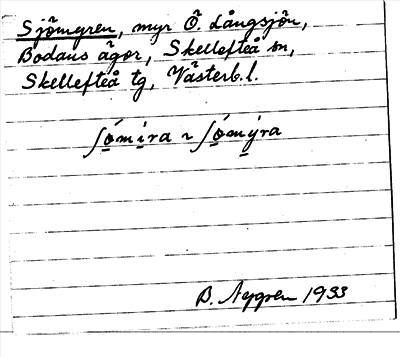 Sjömyren, myr Ö. Långsjön,
Bodans ägor, Skellefteå sn,
Skellefteå tg, Västerb. l.
ʃó̱mi̱ra ~ ʃó̱mý̱ra
B. Nygren 1933